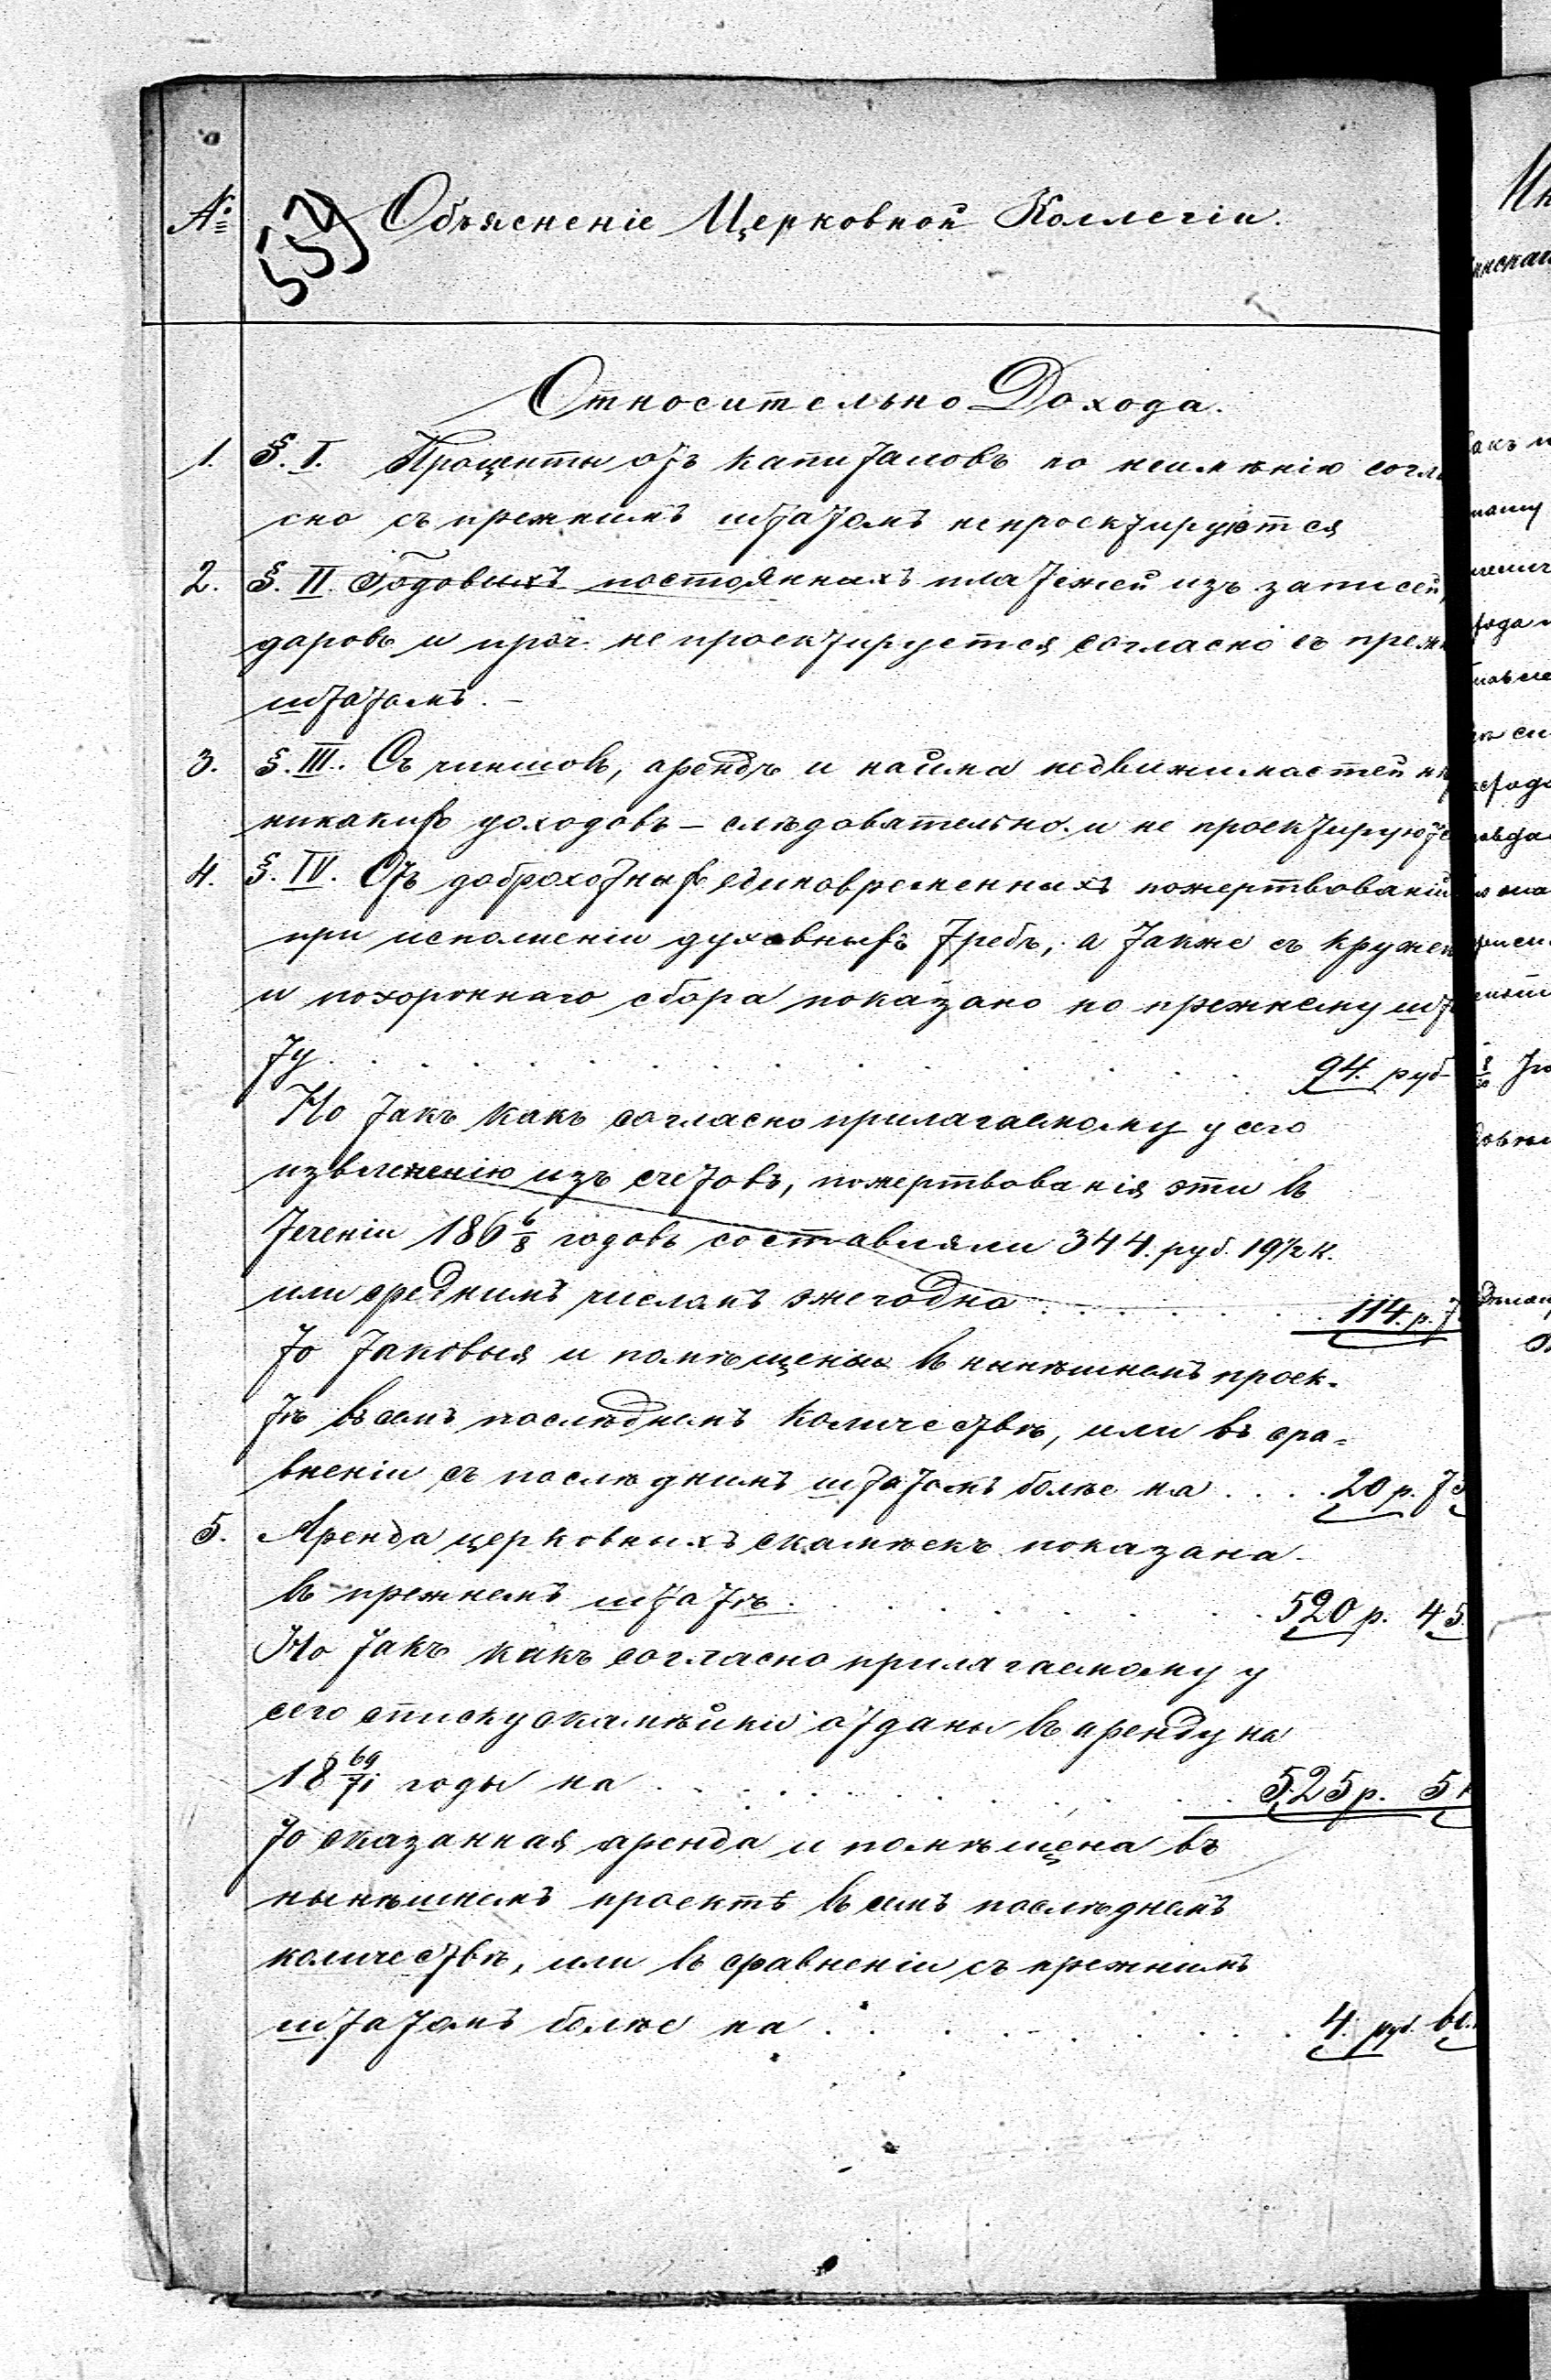 № 557 Объясненіе Церковной Коллегіи.
Относительно Дохода.
1. §. I. Проценты отъ капиталовъ по неимѣнію согла
сно съ прежнимъ штатомъ не проектируются
2. §. II. Годовыхъ постоянныхъ платежей изъ записей,
даровъ и проч. не проектируется согласно съ преж
штатомъ. –
3. §. III. Съ чиншовъ, арендъ и найма недвижимостей
никакихъ доходовъ – слѣдовательно и не проектирують
4. §. IV. Отъ доброхотныхъ единовременныхъ пожертвованій
при исполненіи духовныхъ требъ, а также съ кружеч
и похороннаго сбора показано по прежнему шта
ту . . . . . . . . . . 94. руб
Но такъ какъ согласно прилагаемому у сего
извлеченію изъ счетовъ, пожертвованія эти въ
теченіи 186 6/8 годовъ составляли 344. руб. 19 1/2 к.
или среднимъ числомъ ежегодно . . . . . . 114. р. 7
то таковыя и помѣщены въ нынѣшнемъ проек-
тѣ въ семъ послѣднемъ количествѣ, или въ сра=
вненіи съ послѣднимъ штатомъ болѣе на . . . . 20 р. 7
5. Аренда церковныхъ скамѣекъ показана
въ прежнемъ штатѣ . . . . . . . . . 520 р. 45.
Но такъ какъ согласно прилагаемому у
сего списку скамѣйки отданы въ аренду на
18 69/71 годы на . . . . . . . . . . 525 р. 5 к
то сказанная аренда и помѣщена въ
нынѣшнемъ проектѣ въ семъ послѣднемъ
количествѣ, или въ сравненіи съ прежнимъ
штатомъ болѣе на . . . . . . . . . 4. руб.